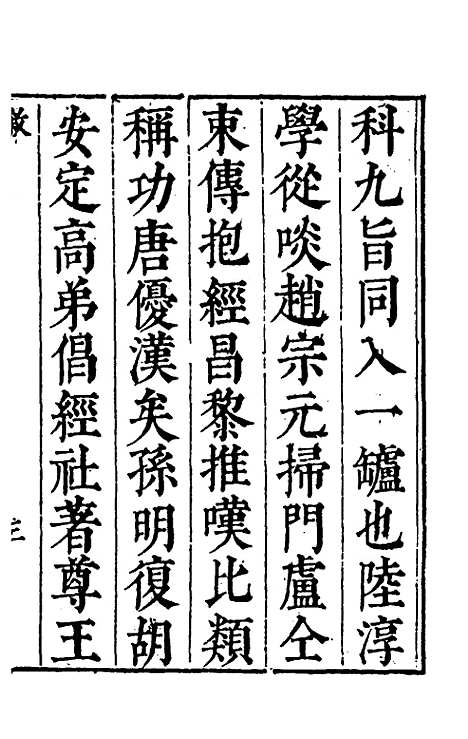 科九旨同入一罏也陸淳
學從啖趙宗元掃門盧仝
束傳抱經昌黎推嘆比類
稱功唐優漢矣孫明復胡
安定高弟倡經社著尊王
三